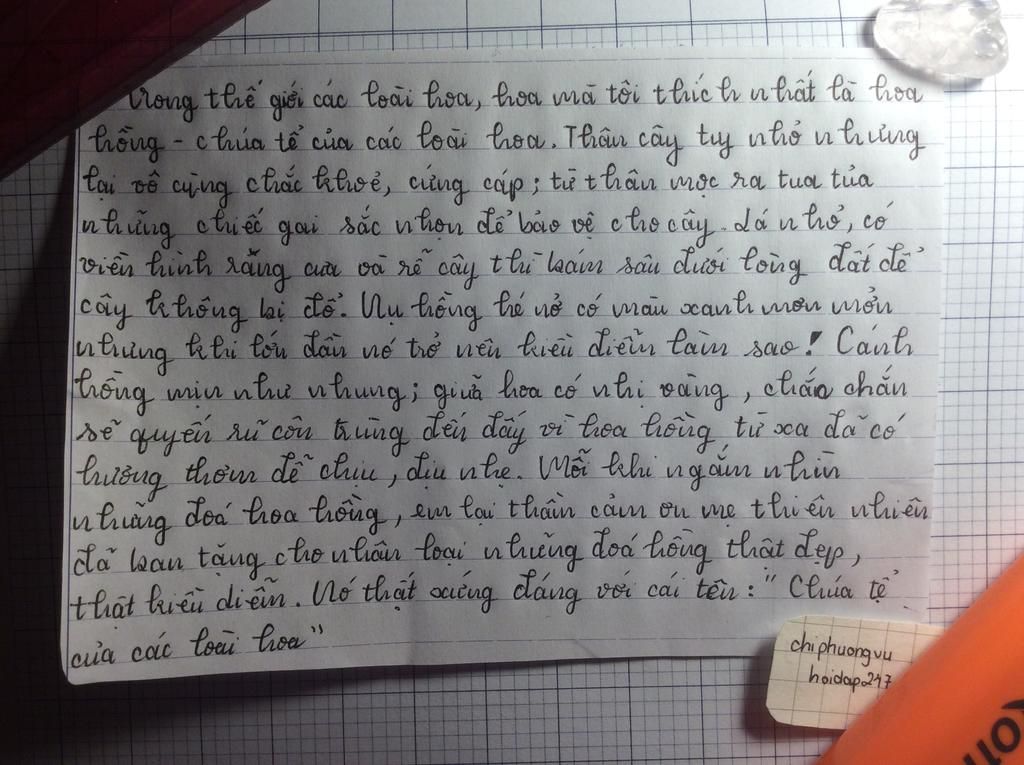 Trong thế giới các loài hoa, hoa mà tôi thích nhất là hoa
hồng - chúa tể của các loài hoa. Thân cây tuy nhỏ nhưng
lại vô cùng chắc khoẻ, cứng cáp; từ thân mọc ra tua tủa
những chiếc gai sắc nhọn để bảo vệ cho cây. Lá nhỏ, có
viền hình răng cưa và rễ cây thì bám sâu dưới lòng đất để
cây không bị đổ. Nụ hồng hé nở có màu xanh mơn mởn
nhưng khi lớn dần nó trở nên kiều diễm làm sao! Cánh
hồng mịn như nhung; giữa hoa có nhị vàng, chắc chắn
sẽ quyến rũ côn trùng đến đấy vì hoa hồng từ xa đã có
hương thơm dễ chịu, dịu nhẹ. Mỗi khi ngắm nhìn
những đoá hoa hồng, em lại thầm cảm ơn mẹ thiên nhiên
đã ban tặng cho nhân loại những đoá hồng thật đẹp,
thật kiều diễm. Nó thật xứng đáng với cái tên: "Chúa tể
của các loài hoa"
chiphuongvu
hoidap247